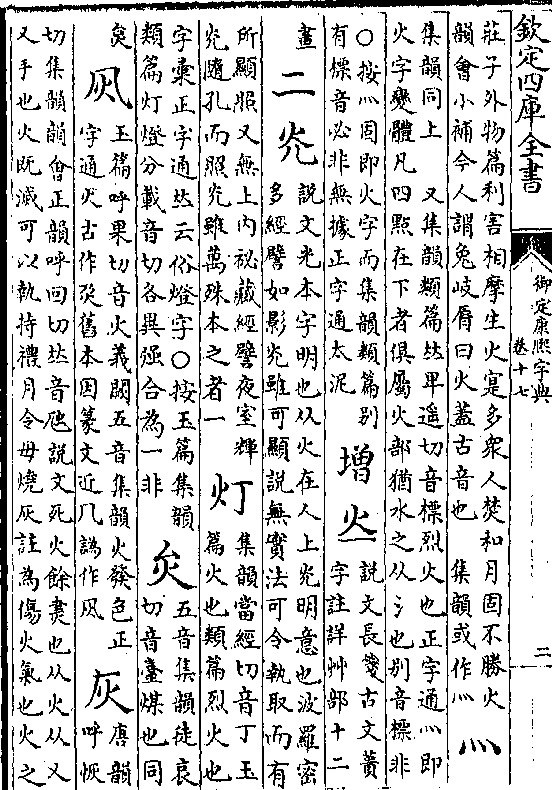 欽定四庫全書
御定康熙字典
卷十七
二
莊子外物篇利害相摩生火寔多衆人焚和月固不勝火
韻會小補今人謂兔岐脣曰火蓋古音也　集韻或作灬
灬
集韻同上　又集韻類篇𠀤畢遥切音標烈火也正字通灬即
火字變體凡四點在下者俱屬火部猶水之从氵也别音標非
○按灬固即火字而集韻類篇别
有標音必非無據正字通太泥
增
說文長箋古文蕢
字註詳艸部十二
畫
二
灮
說文光本字明也从火在人上灮明意也波羅密
多經譬如影灮雖可顯說無實法可令執取而有
所顯照又無上内祕藏經譬夜室輝
灮隨孔而照灮雖萬殊本之者一
灯
集韻當經切音丁玉
篇火也類篇烈火也
字彙正字通𠀤云俗燈字○按玉篇集韻
類篇灯燈分載音切各異强合為一非
五音集韻徒哀
切音臺煤也同
炱
玉篇呼果切音火義闕五音集韻火發色正
字通火古作舊本因篆文近几譌作
灰
唐韻
呼恢
切集韻韻會正韻呼回切𠀤音虺說文死火餘㶳也从火从又
又手也火既滅可以執持禮月令毋燒灰註為傷火氣也火之